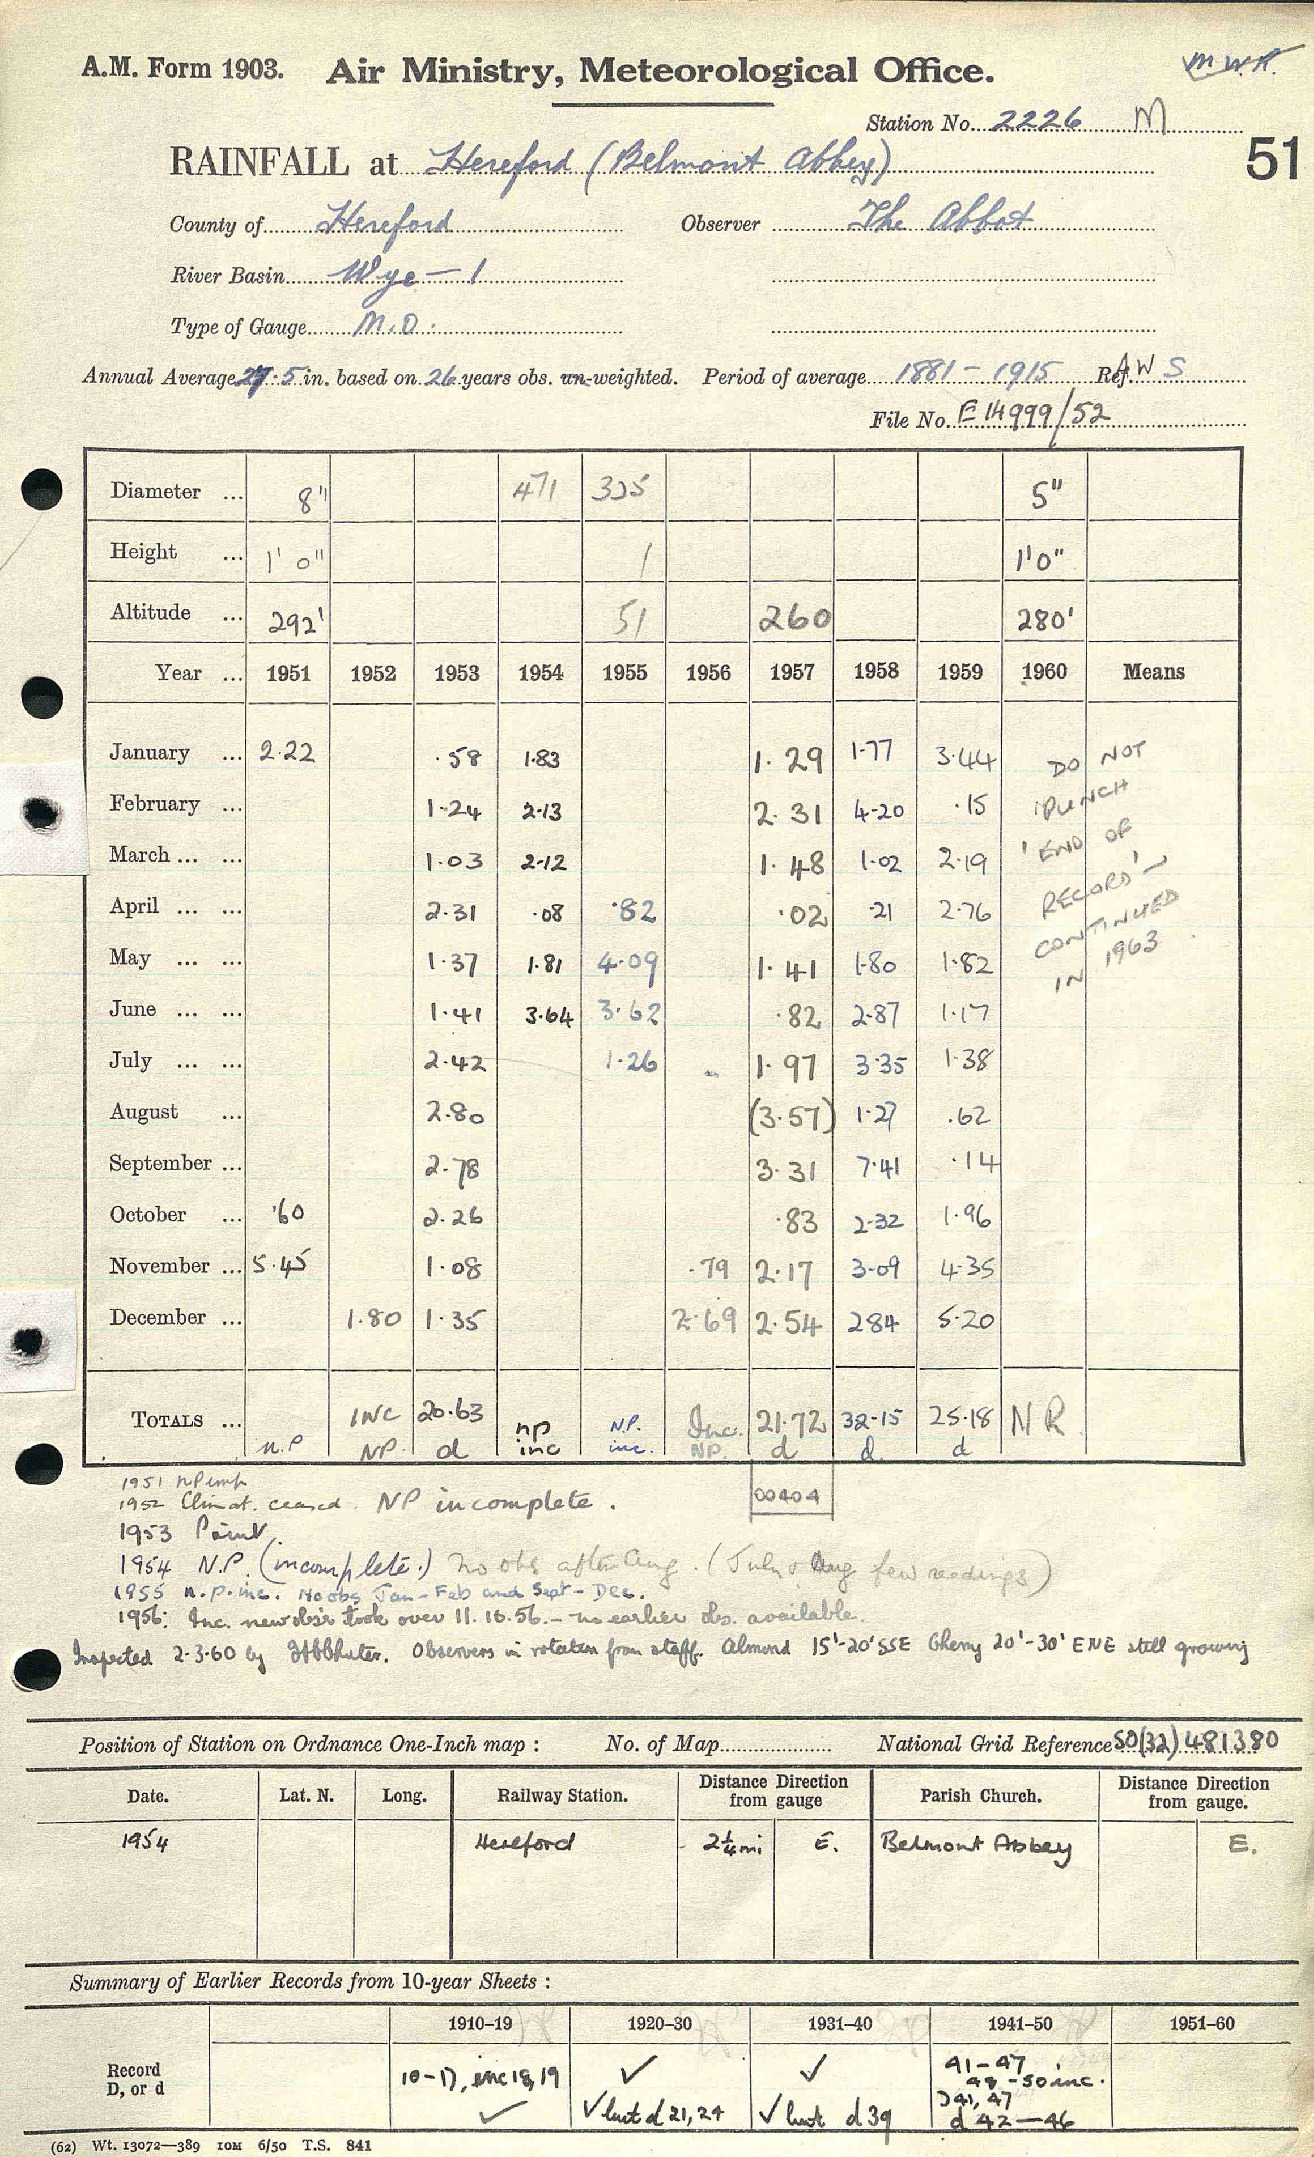 A.M. Form 1903. Air Ministry, Meteorological Office. M.W.R.
Station No. 2226 M
RAINFALL at Hereford (Belmont Abbey) 51
County of Hereford Observer The Abbot
River Basin Wye – 1
Type of Gauge M.O.
Annual Average 27.5 in. based on 26 years obs. un-weighted. Period of average 1881 – 1915 Ref. AWS
File No. E 14999/52
Diameter ... 8" 471 325 5"
Height ... 1' 0" 1 1'0"
Altitude ... 292' 51 260 280'
Year ... 1951 1952 1953 1954 1955 1956 1957 1958 1959 1960 Means
January ... 2.22 .58 1.83 1.29 1.77 3.44 DO NOT
February ... 1.24 2.13 2.31 4.20 .15 PUNCH
March ... ... 1.03 2.12 1.48 1.02 2.19 'END OF
April ... ... 2.31 .08 .82 .02 .21 2.76 RECORD' –
May ... ... 1.37 1.81 4.09 1.41 1.80 1.82 CONTINUED
June ... ... 1.41 3.64 3.62 .82 2.87 1.17 IN 1963
July ... ... 2.42 1.26 1.97 3.35 1.38
August ... 2.80 (3.57) 1.27 .62
September ... 2.78 3.31 7.41 .14
October ... .60 2.26 .83 2.32 1.96
November ... 5.45 1.08 .79 2.17 3.09 4.35
December ... 1.80 1.35 2.69 2.54 284 5.20
TOTALS ... INC 20.63 np N.P. Inc. 21.72 32.15 25.18 NR
n.P NP. d inc inc. NP. d d d
1951 NP
1952 Climat. ceased. NP incomplete.
00404
1953 Point
1954 N.P. (incomplete.) No obs after Aug. (July & Aug few readings)
1955 n.p. inc. No obs Jan – Feb and Sept – Dec.
1956: Inc. new obsr took over 11.10.56. – no earlier obs. available.
Inspected 2.3.60 by Observers in rotation from staff. Almond 15'-20' SSE Cherry 20'-30' ENE still growing
Position of Station on Ordnance One-Inch map : No. of Map National Grid Reference SO(32) 481380
Date. Lat. N. Long. Railway Station. Distance Direction from gauge Parish Church. Distance Direction from gauge.
1954 Hereford 2¼ mi E. Belmont Abbey E.
Summary of Earlier Records from 10-year Sheets :
1910–19 1920–30 1931–40 1941–50 1951–60
Record D, or d
10–17, inc 18, 19 ✓ ✓ ✓ 41–47
48–50 inc.
✓ but d 21, 24 ✓ but d 39 D 41, 47
d 42–46
(62) Wt. 13072—389 10M 6/50 T.S. 841